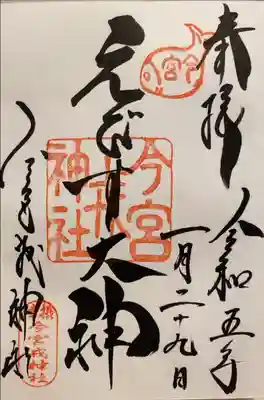 奉拝
令和五年
一月二十九日
えびす大神
今宮戎神社
今宮
今宮戎神社